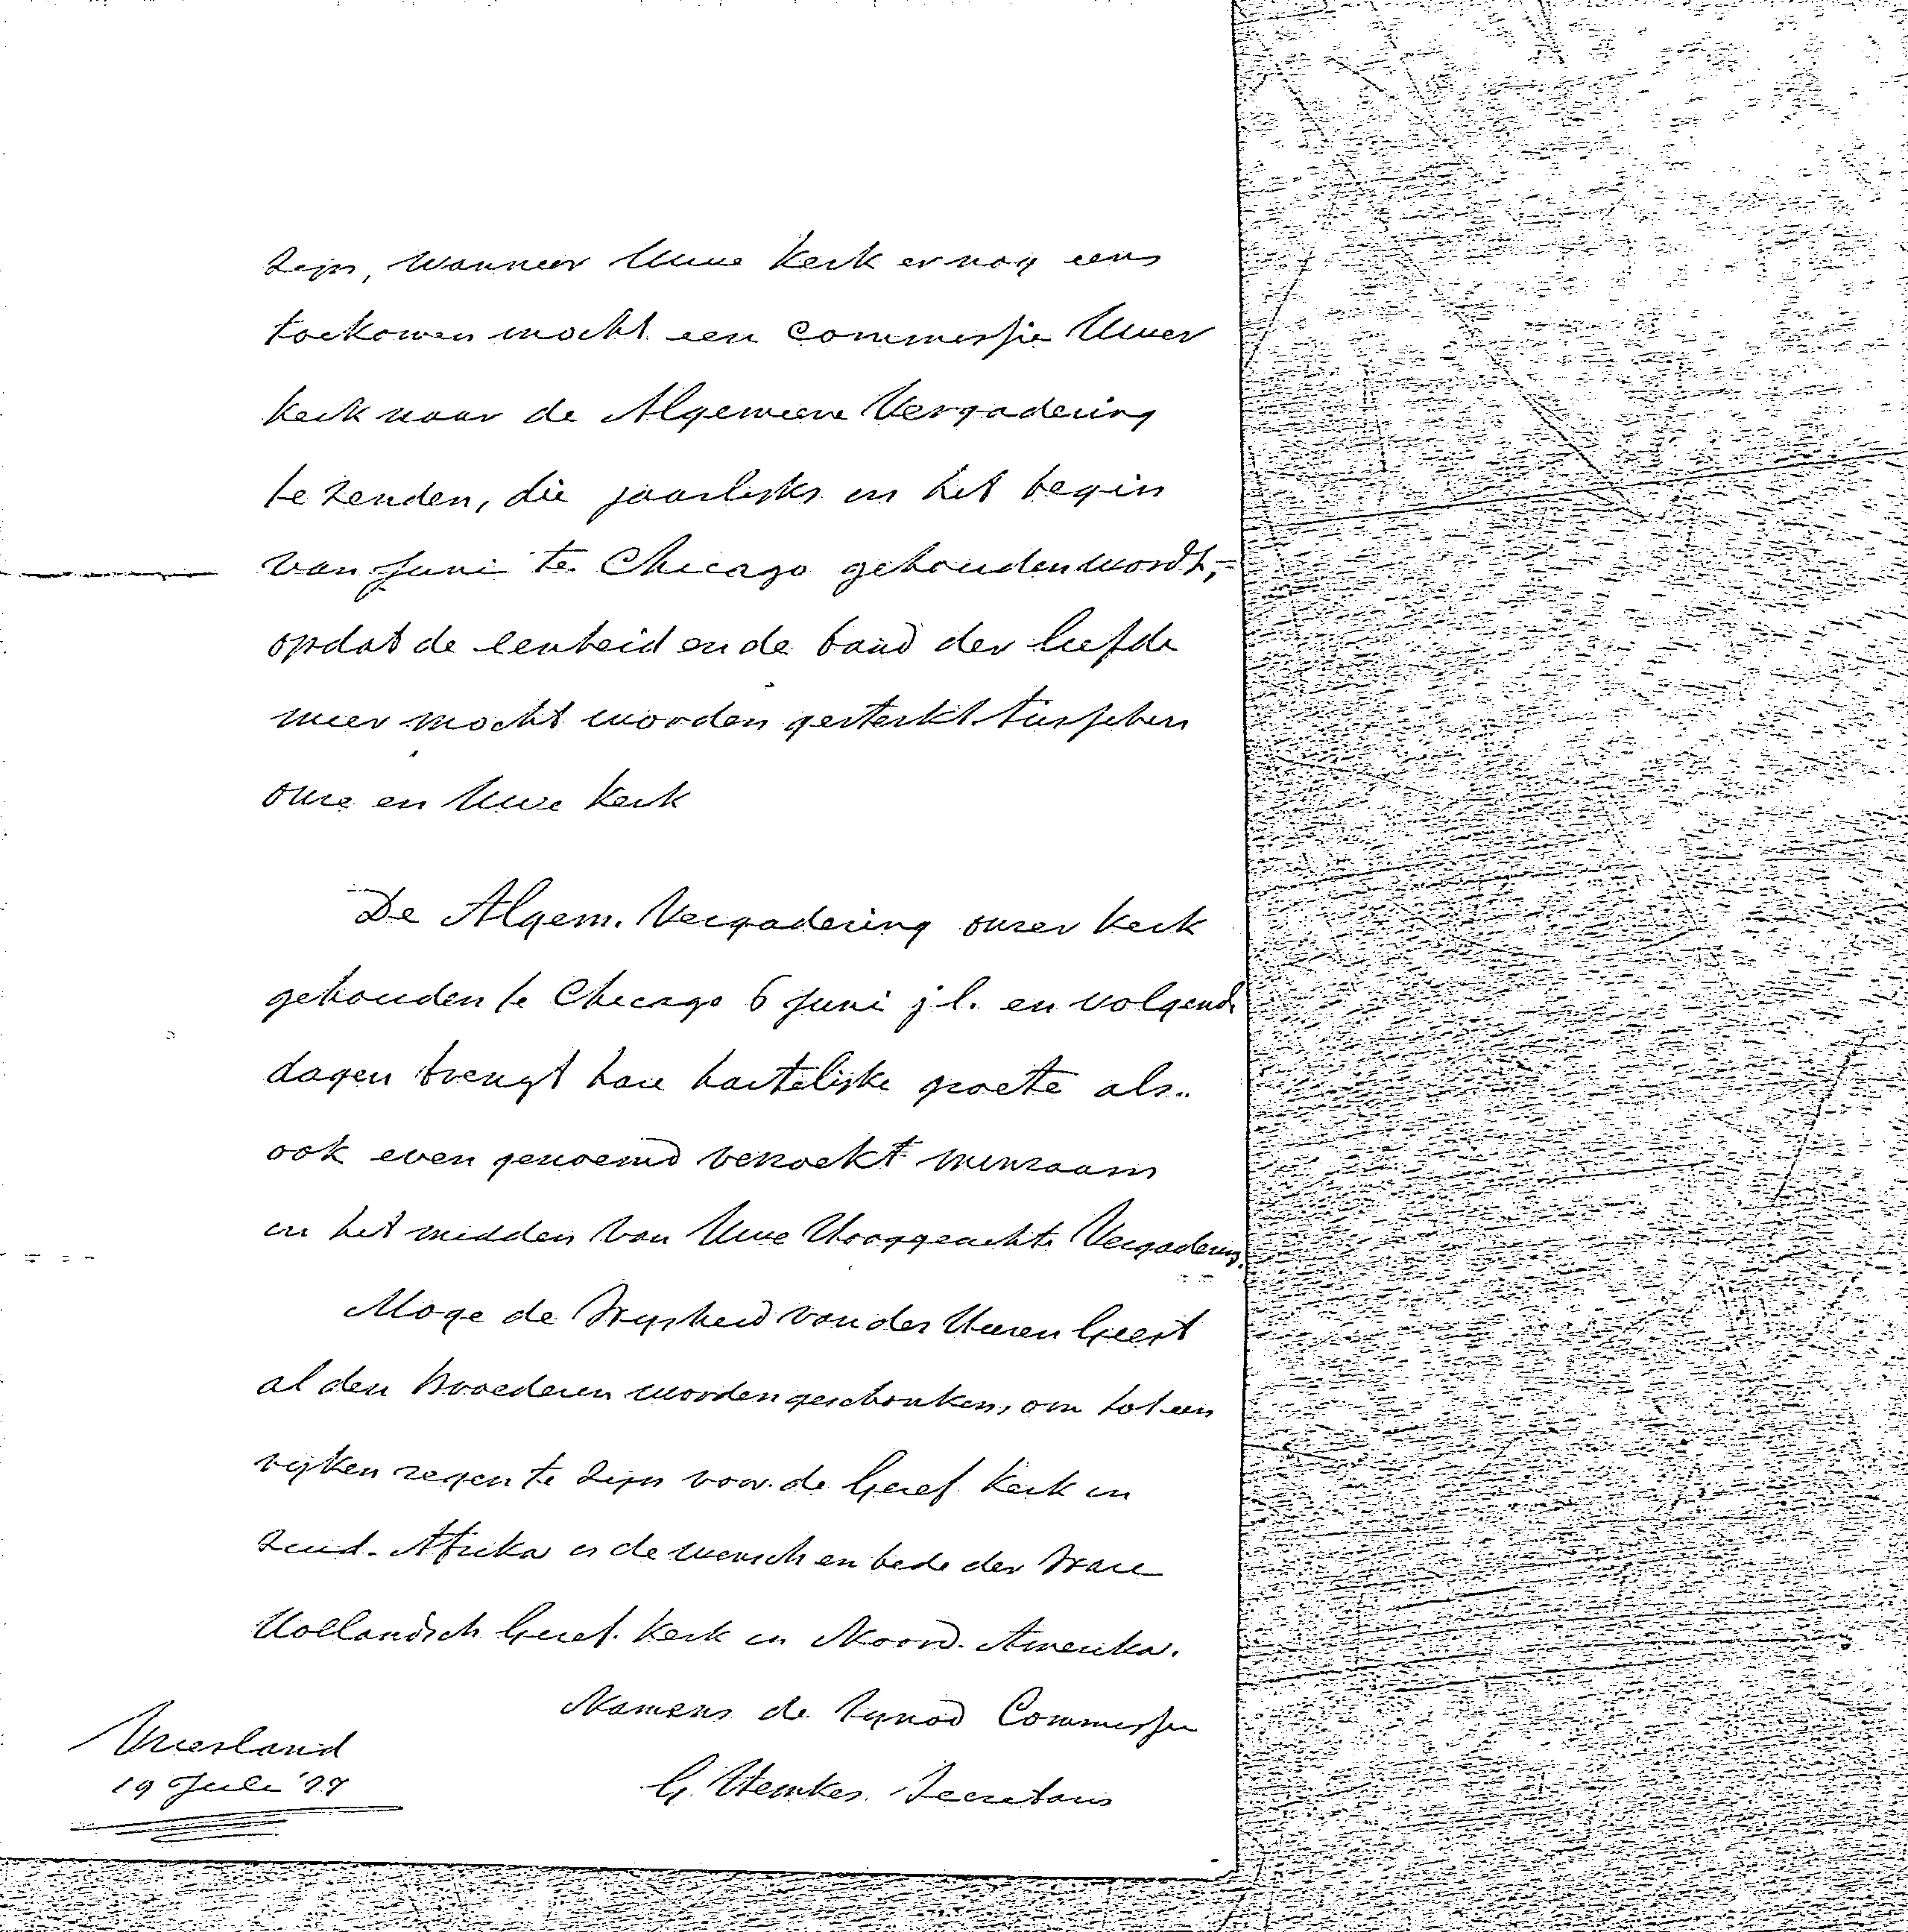 zijn, wanneer Uwe Kerk er nog eens
toekomen mocht een commissie Uwer
Kerk naar de Algemeene Vergadering
te zenden, die jaarlijks in het begin
van Juni te Chicago gehouden wordt,
opdat de eenheid en de band der liefde
meer mocht worden gesterkt tusschen
onze en Uwe Kerk
De Algem. Vergadering onzer Kerk
gehouden te Chicago 6 Juni j l. en volgende
dagen brengt hare hartelijke groete als
ook even genoemd verzoekt minzaam
in het midden van Uwe Hooggeachte Vergadering.
Moge de Wijsheid van des Heeren Geest
al den Broederen worden geschonken, om tot een
rijken zegen te zijn voor de Geref Kerk in
Zuid-Afrika is de wensch en bede der Ware
Hollandsch Geref. Kerk in Noord-Amerika.
Namens de Synod Commissie
G. Hemkes Secretaris
Vriesland
19 Juli '77